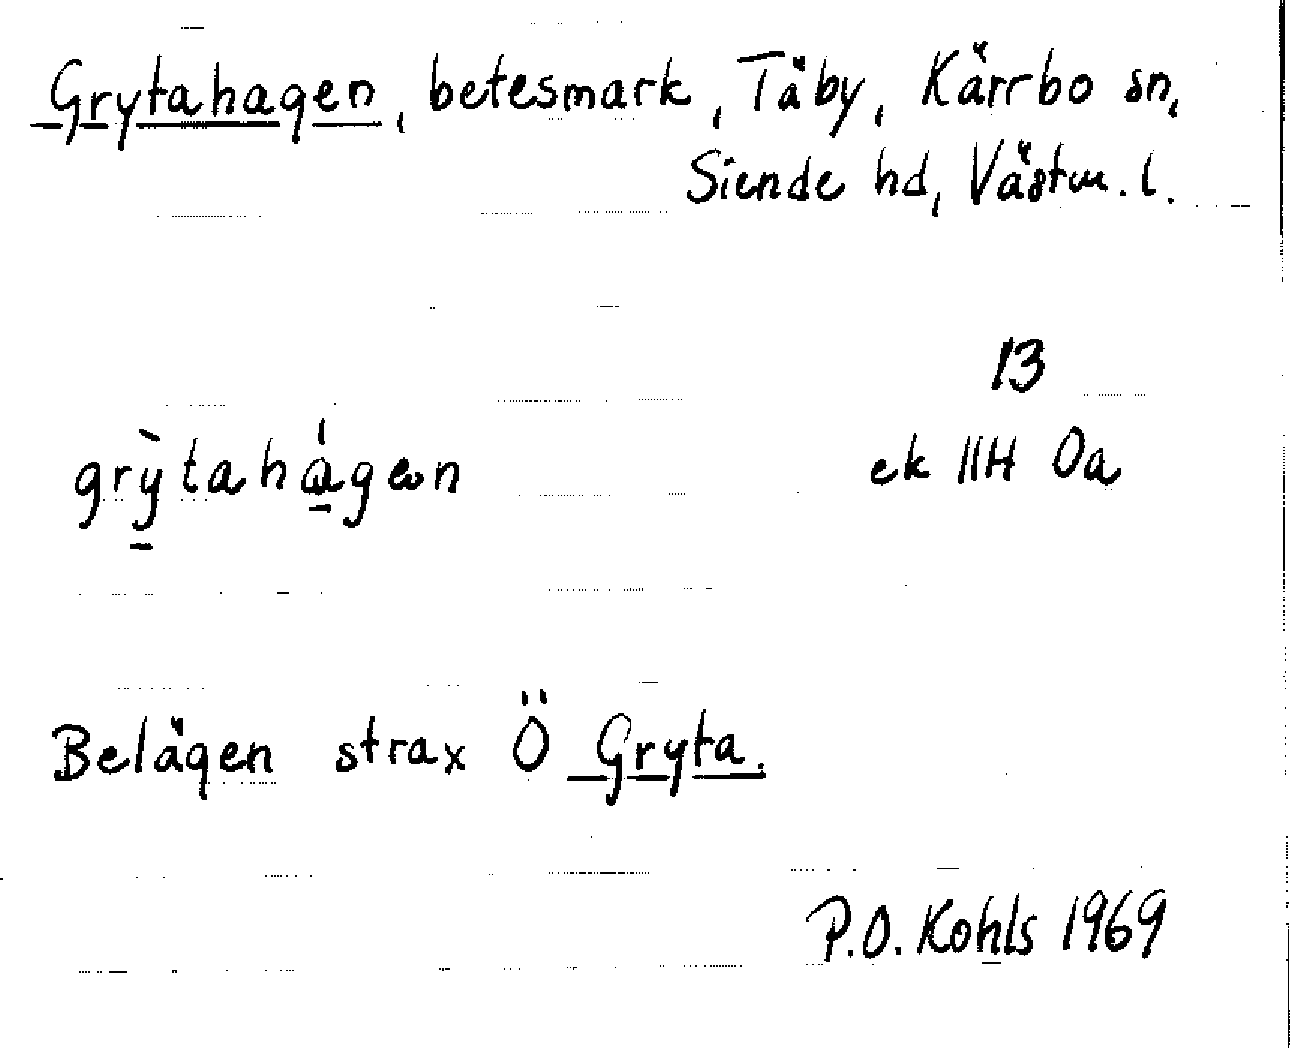 Grytahagen, betesmark, Täby, Kärrbo sn,
Siende hd, Västm. l.
13
grỳtahágen ek 11H 0a
Belägen strax Ö Gryta.
P.O. Kohls 1969